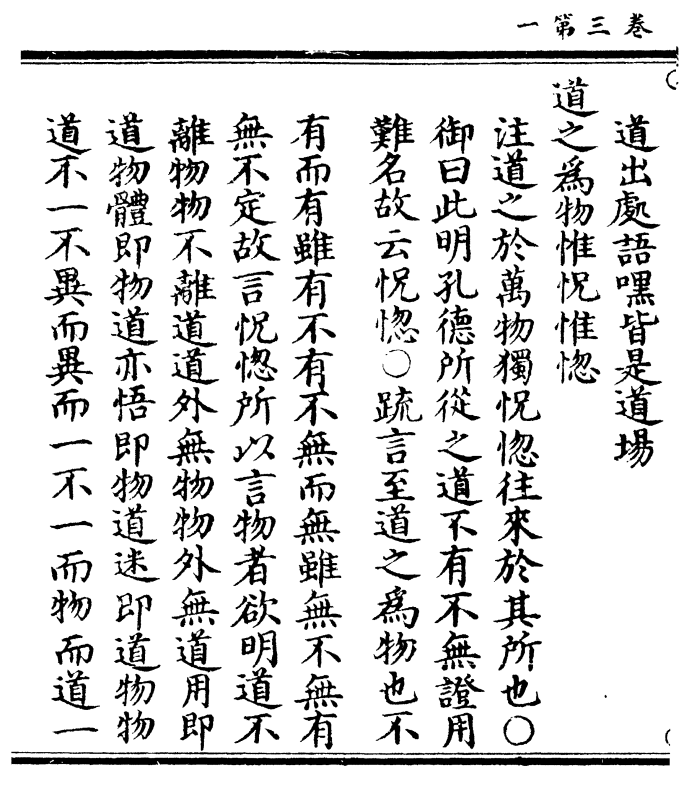 卷三第一
道出處語嘿皆是道場
道之爲物惟怳惟惚
注道之於萬物獨怳惚往來於其所也○
御曰此明孔德所從之道不有不無證用
難名故云怳惚○䟽言至道之爲物也不
有而有雖有不有不無而無雖無不無有
無不定故言怳惚所以言物者欲明道不
離物物不離道道外無物物外無道用即
道物體即物道亦悟即物道迷即道物物
道不一不異而異而一不一而物而道一